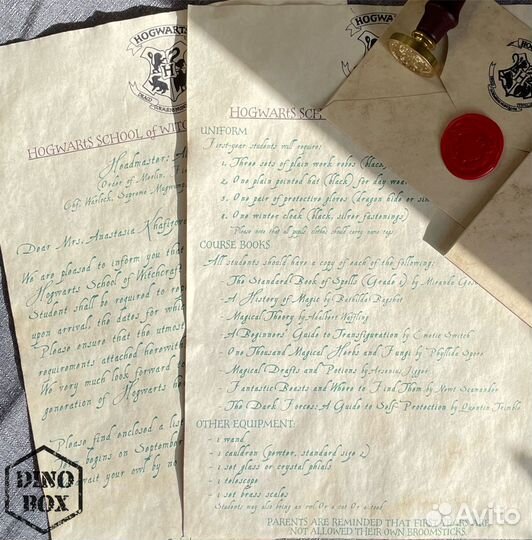 HOGWARTS
HOGWARTS SCHOOL of WITC
Headmaster: Al
Order of Merlin, Fi
Chf. Warlock, Supreme Mugwump
Dear Mrs. Anastasia
We are pleased to inform you that
Hogwarts School of Witchcraft
Student shall be required to
upon arrival, the dates for wh
Please ensure that the utmost
requirements attached herewith
We very much look forward t
generation of Hogwarts he
Please find enclosed a list
begins on September
await your owl by no
HOGWARTS
HOGWARTS SCH
UNIFORM
First-year students will require:
1. Three sets of plain work robes (black)
2. One plain pointed hat (black) for day wea
3. One pair of protective gloves (dragon hide or sim
4. One winter cloak (black, silver fastenings)
Please note that all pupils' clothes should carry name tags
COURSE BOOKS
All students should have a copy of each of the following:
The Standard Book of Spells (Grade 1) by Miranda Gos
- A History of Magic by Bathilda Bagshot
- Magical Theory by Adalbert Waffling
- A Beginners' Guide to Transfiguration by Emeric Switch
- One Thousand Magical Herbs and Fungi by Phyllida Spore
- Magical Drafts and Potions by Arsenius Jigger
- Fantastic Beasts and Where to Find Them by Newt Scamander
- The Dark Forces: A Guide to Self-Protection by Quentin Trimble
OTHER EQUIPMENT:
- 1 wand
- 1 cauldron (pewter, standard size 2)
- 1 set glass or crystal phials
- 1 telescope
- 1 set brass scales
Students may also bring an owl OR a cat OR a toad
PARENTS ARE REMINDED THAT FIRST YEARS ARE
NOT ALLOWED THEIR OWN BROOMSTICKS
DINO
BOX
Avito